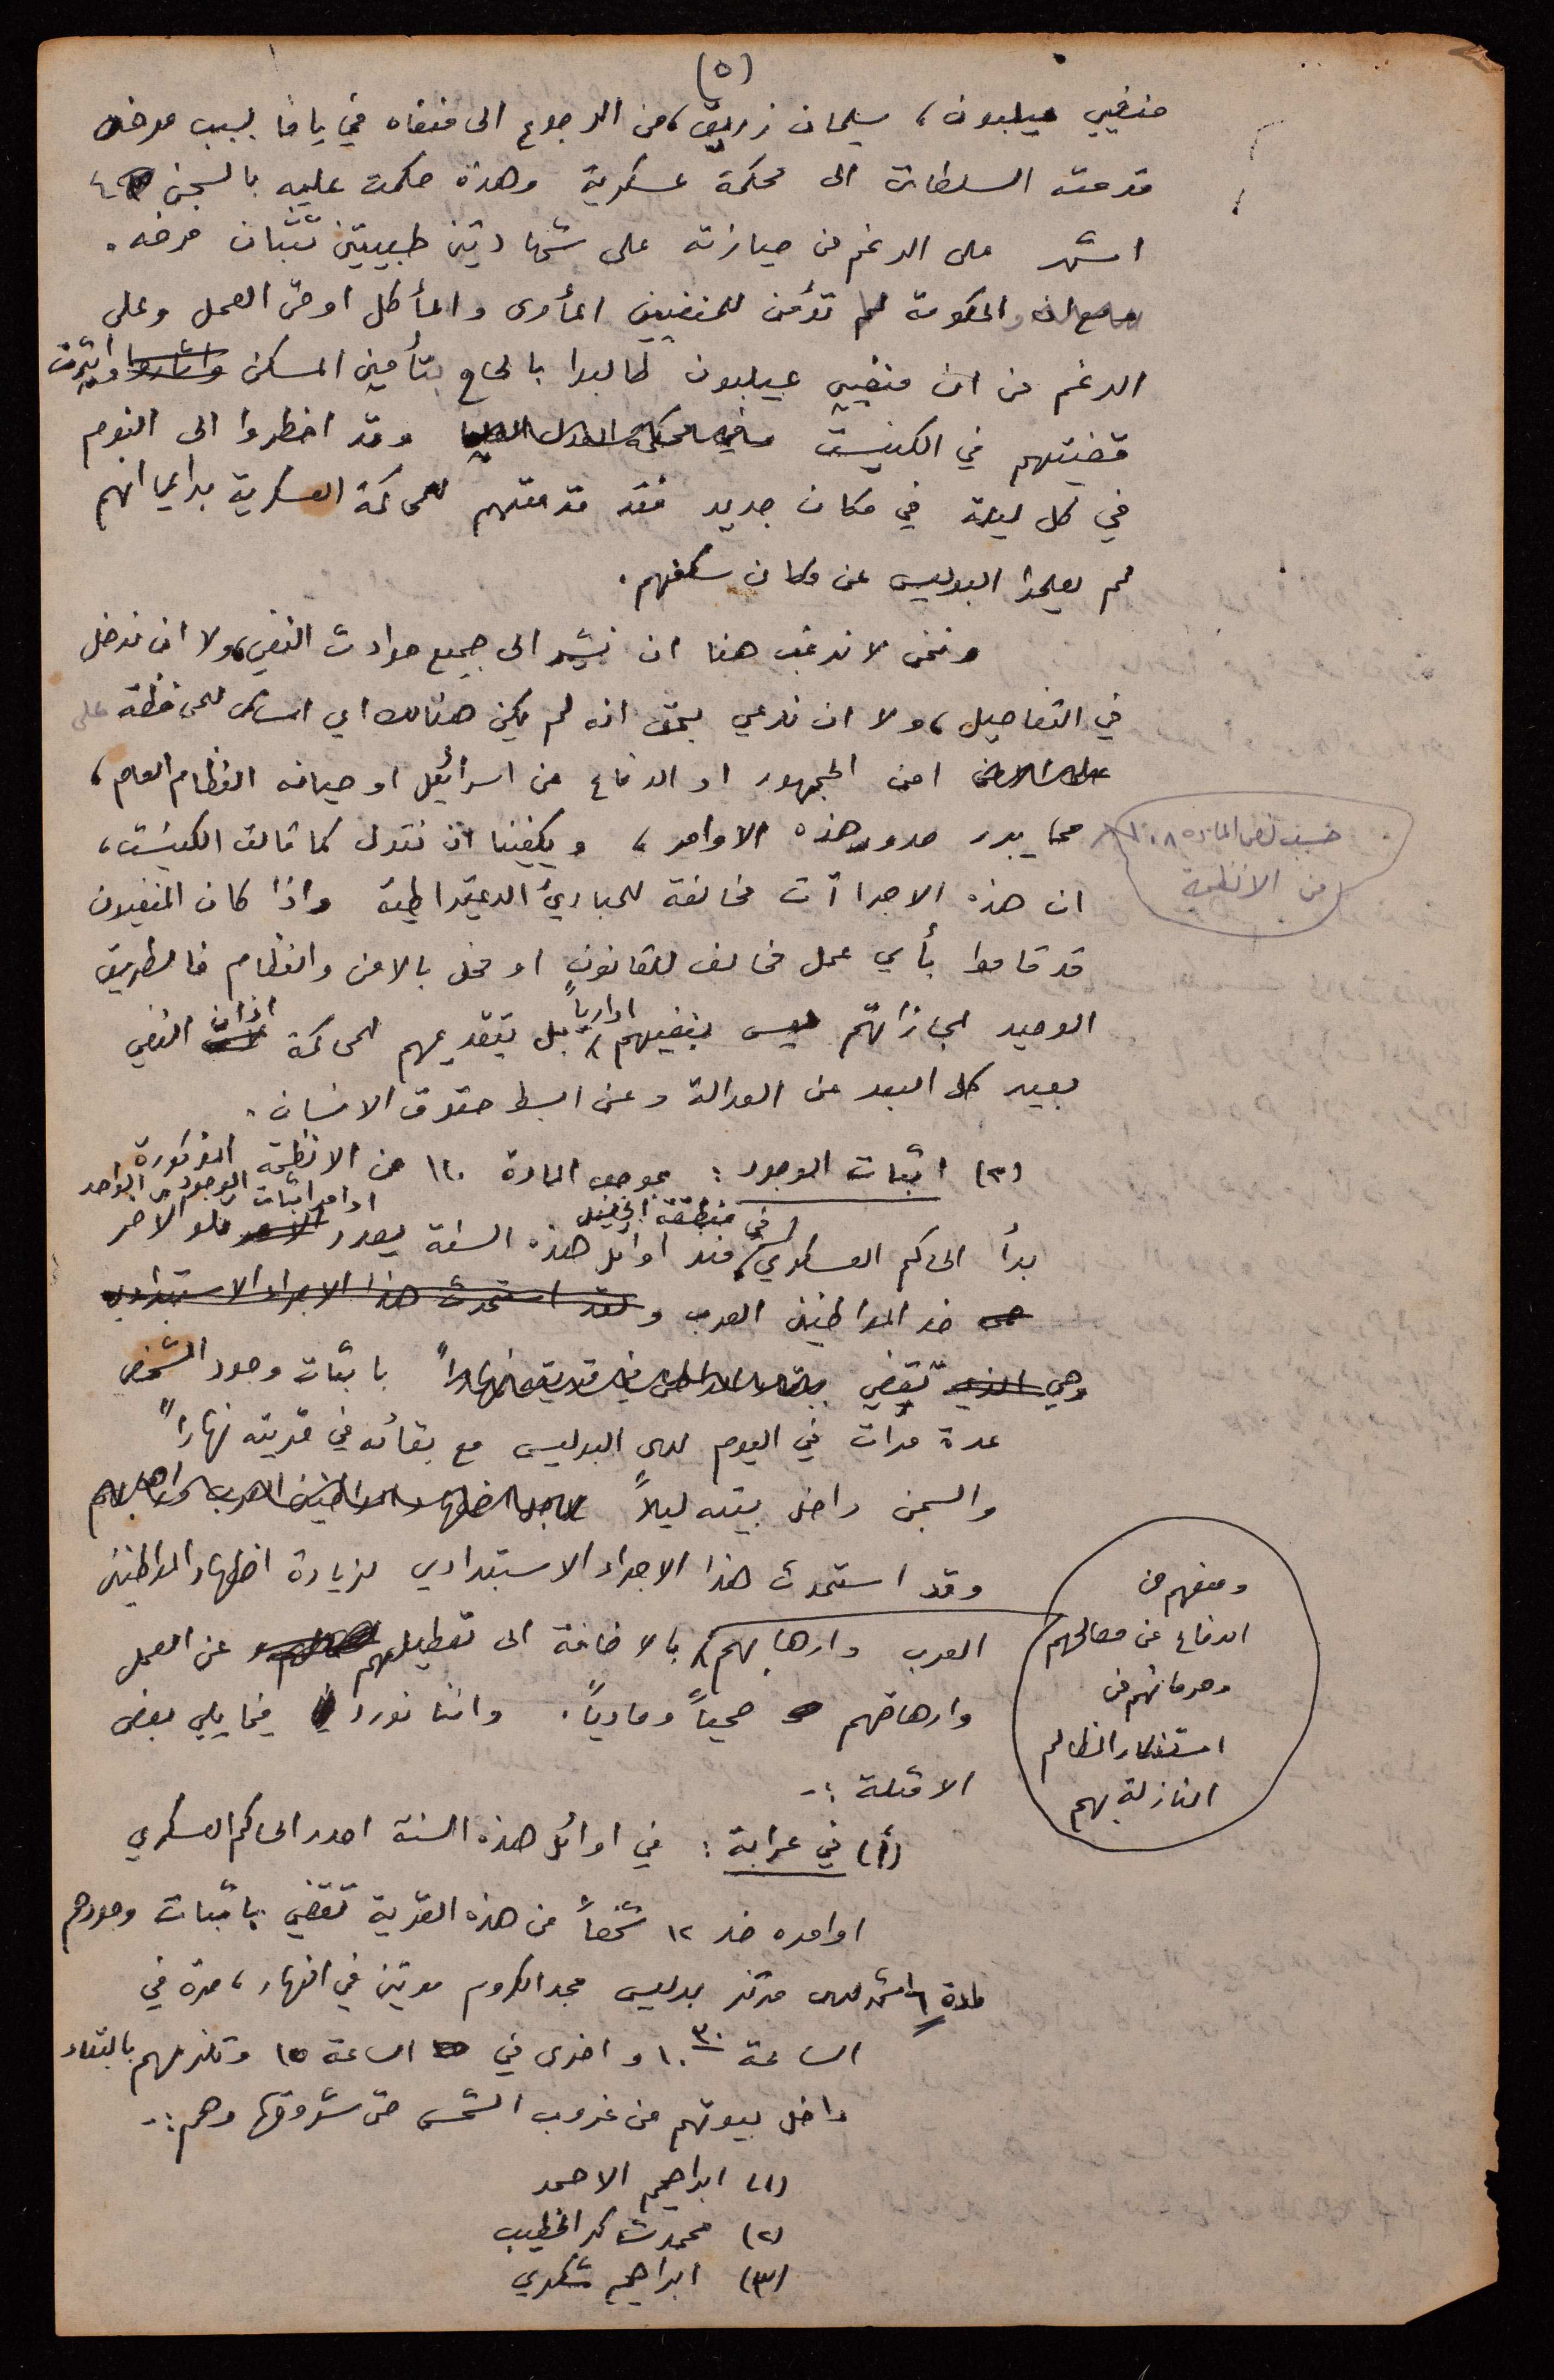 (٥)
منفيي عيلبون، سليمان زريق، من الرجوع الى منفاه في يافا بسبب مرضه
قدمته السلطات الى محكمة عسكرية وهذه حكمت عليه بالسجن ٤
اشهر على الرغم من حيازته على شهادتين طبيتين تثبتان مرضه.
ومع ان الحكومة لم تؤمن للمنفيين المأوى والمأكل او حتى العمل وعلى
الرغم من ان منفيي عيلبون طالبوا بالحاح بتأمين المسكن واثاروا واثيرت
قضيتهم في الكنيست وفي محكمة العدل العليا وقد اضطروا الى النوم
في كل ليلة في مكان جديد فقد قدمتهم للمحاكمة العسكرية بداعي انهم
لم يعلموا البوليس عن مكان سكنهم.
ونحن لا نرغب هنا ان نشير الى جميع حوادث النفي، ولا ان ندخل
في التفاصيل، ولا ان ندعي بحق انه لم يكن هنالك اي اساس للمحافظة على
امن الجمهور او الدفاع عن اسرائيل او صيانة النظام العام،
حسب نص المادة ١٠٨
من الانظمة
مما يبرر صدور هذه الاوامر، ويكفينا ان نقول كما قالت الكنيست،
ان هذه الاجراآت مخالفة للمبادئ الديمقراطية واذا كان المنفيون
قد قاموا بأي عمل مخالف للقانون او مخل بالامن والنظام فالطريق
الوحيد لمجازاتهم ليس بنفيهم ادارياً بل بتقديمهم للمحاكمة اذ ان النفي
بعيد كل البعد عن العدالة وعن ابسط حقوق الانسان.
(٣) اثبات الوجود: بموجب المادة ١١٠ من الانظمة المذكورة
بدأ الحاكم العسكري في منطقة الجليل منذ اوائل هذه السنة يصدر اوامر اثبات الوجود الامر تلو الامر الواحد
ضد المواطنين العرب ولقد استحدث هذا الاجراء الاستبدادي
وهي الذي تقضي باثبات وجود الشخص
عدة مرات في اليوم لدى البوليس مع بقائه في قريته نهاراً
والسجن داخل بيته ليلاً لاجل اضطهاد المواطنين العرب وارهابهم
وقد استحدث هذا الاجراء الاستبدادي لزيادة اضطهاد المواطنين
العرب وارهابهم بالاضافة الى تعطيلهم عن العمل
ومنعهم من
الدفاع عن مصالحهم
وحرمانهم من
استنكار المظالم
النازلة بهم
وارهاقهم صحياً ومادياً. واننا نورد فيما يلي بعض
الامثلة :-
(أ) في عرابة: في اوائل هذه السنة اصدر الحاكم العسكري
اوامره ضد ١٢ شخصاً من هذه القرية تقضي باثبات وجودهم
لمدة ٦ اشهر لدى مركز بوليس مجد الكروم مرتين في النهار، مرة في
الساعة ١٠٣٠ واخرى في الساعة ١٥ وتلزمهم بالبقاء
داخل بيوتهم من غروب الشمس حتى شروقها وهم:-
(١) ابراهيم الاحمد
(٢) محمد شاكر الخطيب
(٣) ابراهيم شكري